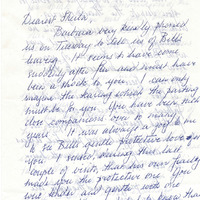 Dearest Sheila,
Barbara very kindly phoned
us on Tuesday to tell us of Bill's
leaving. It seems to have come
suddenly after this and must have
been a shock to you. I can only
imagine the parting
must be to you. You have been such
close companions for so many
years. It was always a joy to me
to see Bill's gentle protective love for
you. I noticed, during this last
couple of visits, that his own frailty
made you the protective one. You
was and gentle with one
know that